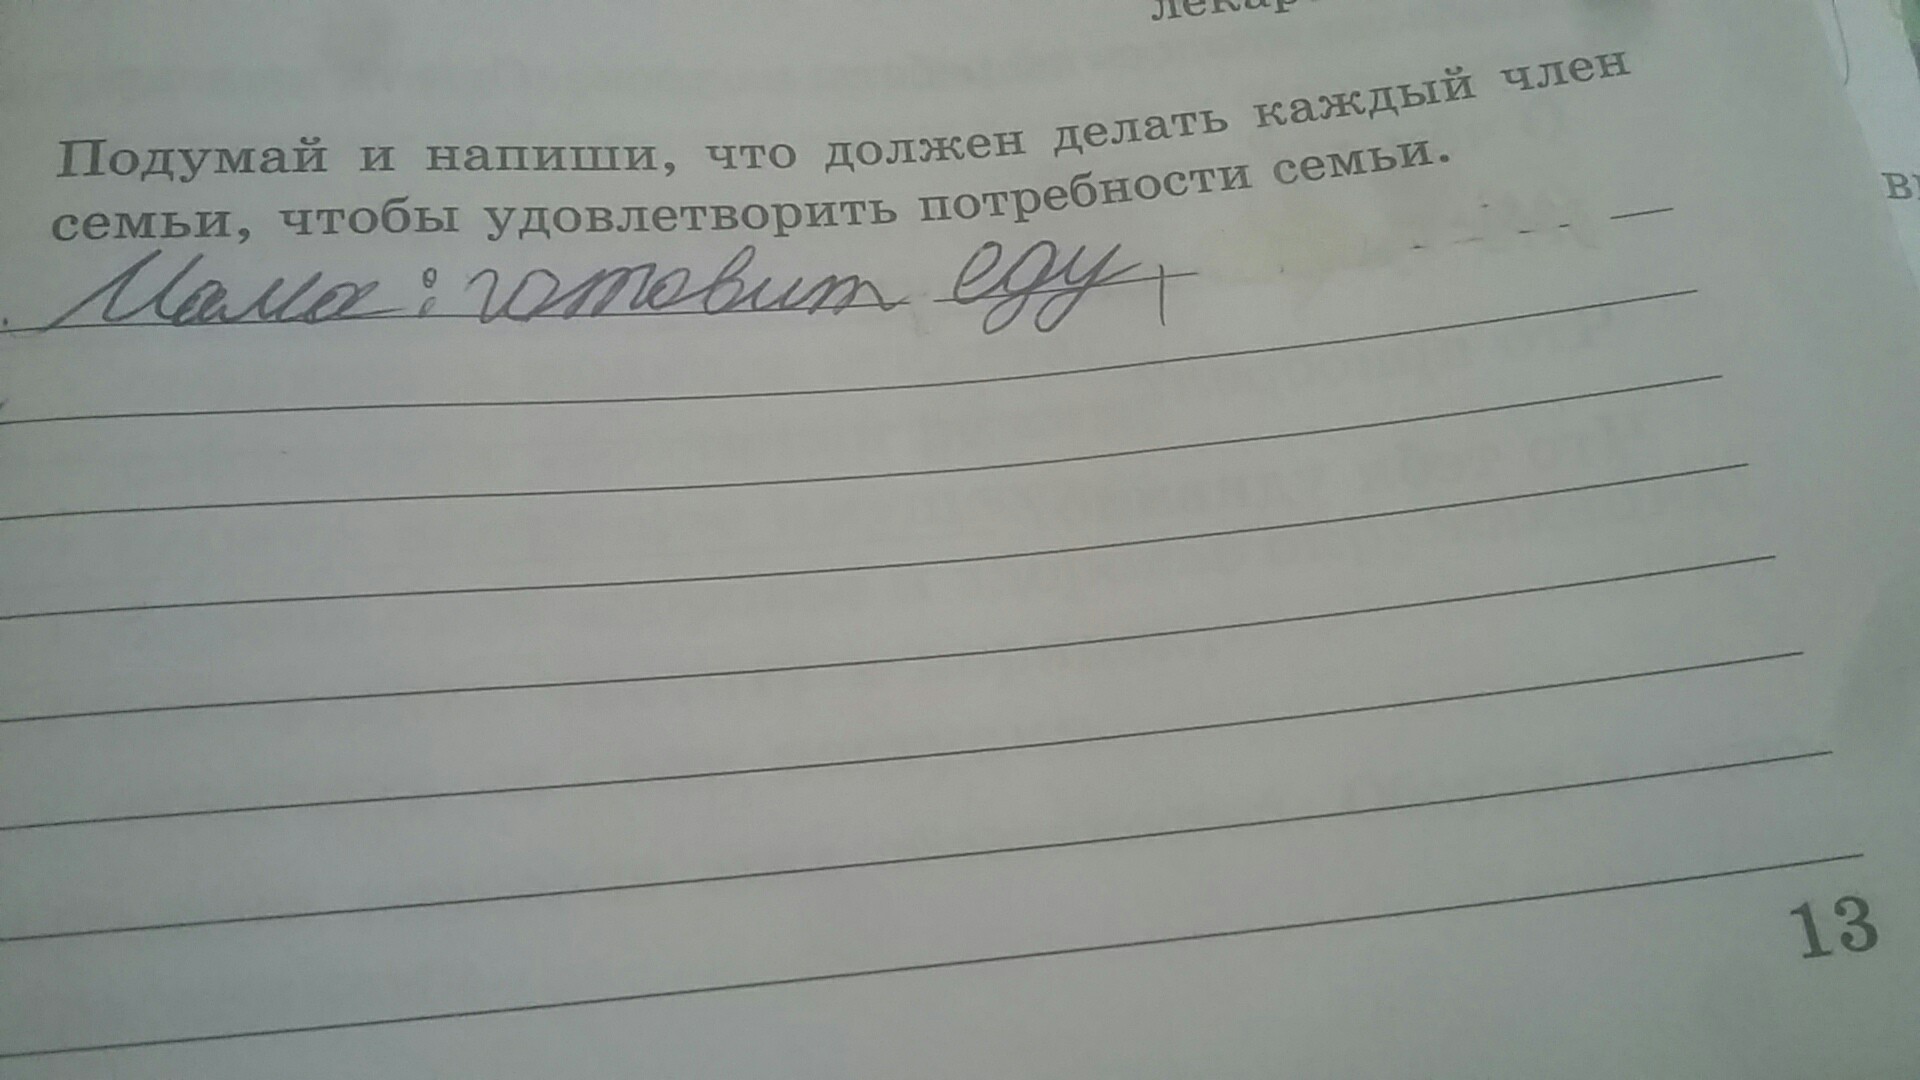 Подумай и напиши, что должен делать каждый член
семьи, чтобы удовлетворить потребности семьи.
Мама: готовит еду,
13